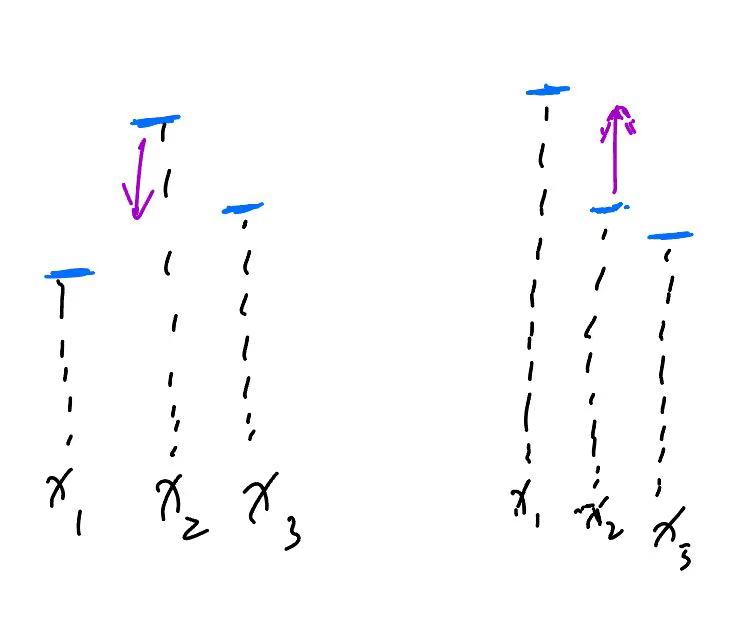 x₁ x₂ x₃ x₁ x₂ x₃